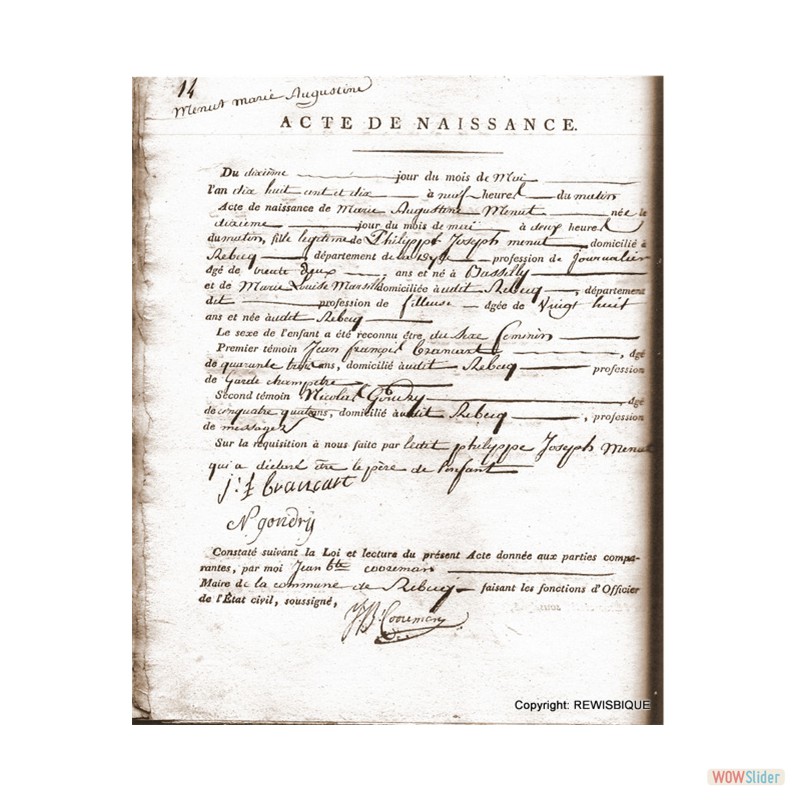 14
Menut marie Augustine
ACTE DE NAISSANCE.
Du dixième jour du mois de Mai
l'an dix huit cent et dix à neuf heures du matin
Acte de naissance de Marie Augustine Menut née le
dixieme jour du mois de mai à deux heures
du matin, fille legitime de Philippe Joseph menut, domicilié à
Rebecq, département de la dyle profession de Journalier
âgé de trente deux, ans et né à Bassilly
et de Marie Louise domiciliée à audit Rebecq, département
dit profession de fileuse âgée de Vingt huit
ans et née audit Rebecq
Le sexe de l'enfant a été reconnu être du sexe feminin
Premier témoin Jean françois brancart, âgé
de quarante trois ans, domicilié à audit Rebecq profession
de Garde champetre
Second témoin Nicolas Gondry âgé
de cinquante quatre ans, domicilié à audit Rebecq, profession
de messager
Sur la réquisition à nous faite par ledit philippe Joseph Menut
qui a déclaré être le père de l'enfant
j: f brancart
N. gondry
Constaté suivant la Loi et lecture du présent Acte donnée aux parties compa-
rantes, par moi Jean bte cooreman
Maire de la commune de Rebecq faisant les fonctions d'Officier
de l'État civil, soussigné,
JB Cooreman
Copyright: REWISBIQUE
WOWSlider